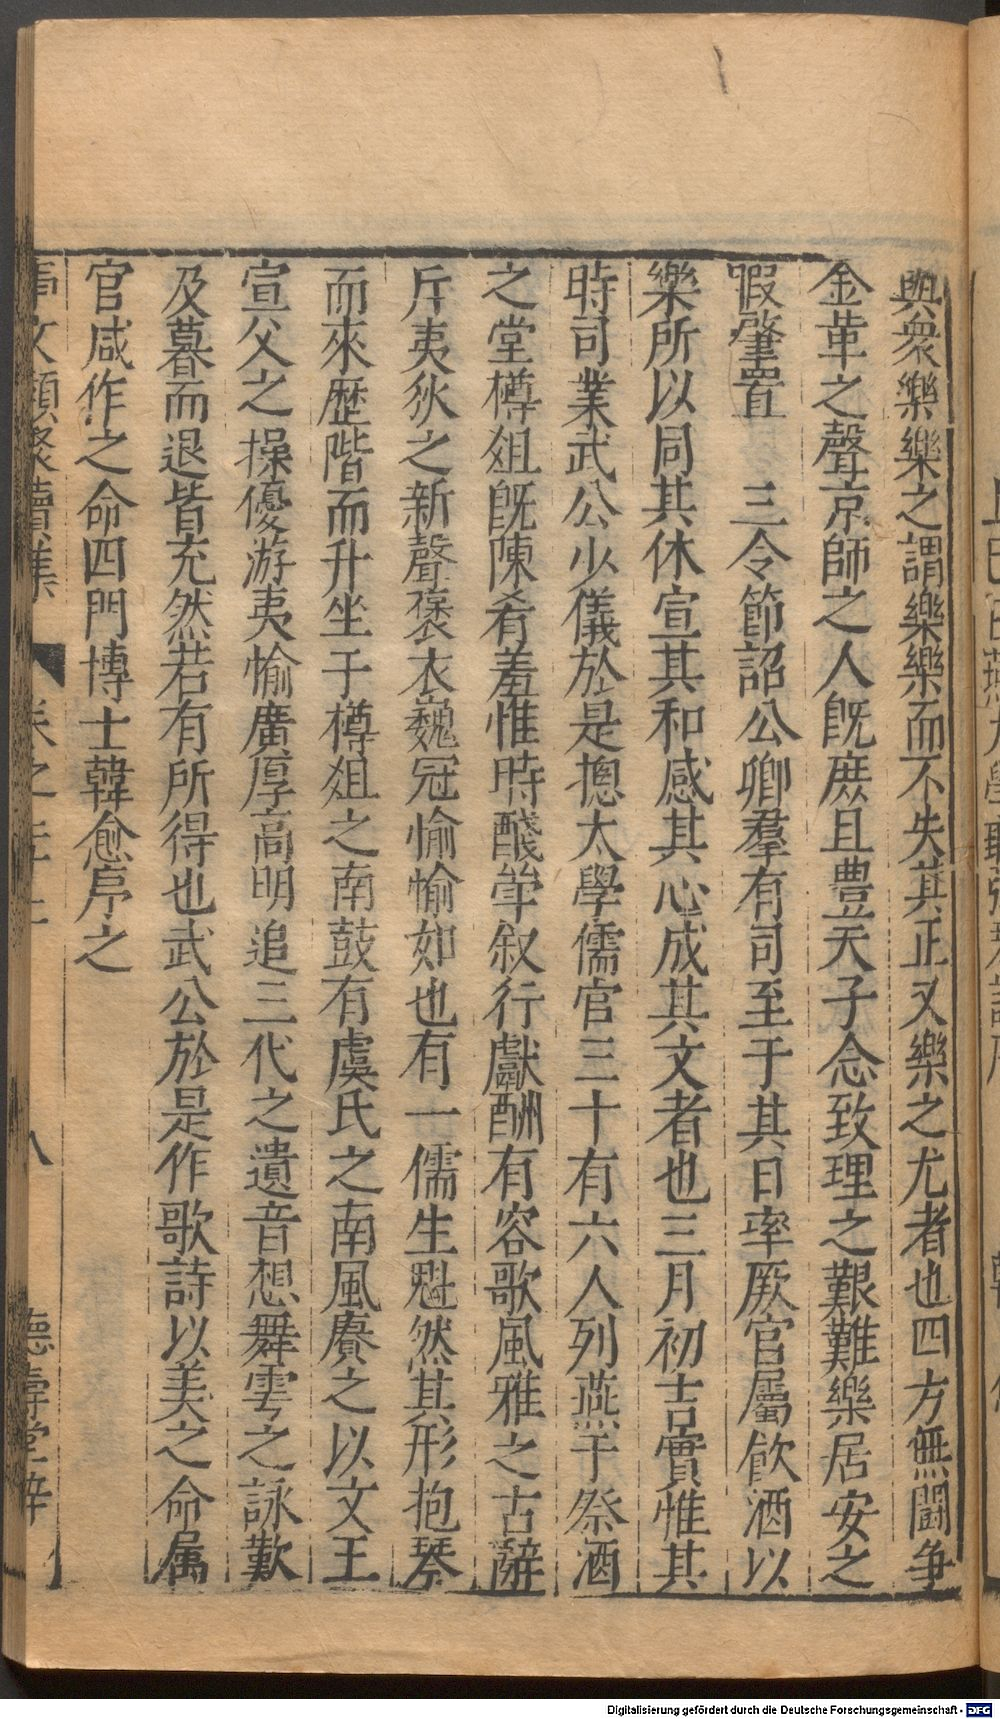 與衆樂樂之謂樂樂而不失其正又樂之尤者也四方無鬪争
金革之聲京師之人旣庶且豊天子念致理之艱難樂居安之
假肇置　三令節詔公卿羣有司至于其日率厥官屬飮酒以
樂所以同其休宣其和感其心成其文者也三月初吉實惟其
時司業武公少儀於是摠太學儒官三十有六人列燕于祭酒
之堂樽俎旣陳肴羞惟時醆斝叙行獻酬有容歌風雅之古辭
斥夷狄之新聲褒衣巍冠愉愉如也有一儒生魁然其形抱琴
而來歷階而升坐于樽俎之南鼓有虞氏之南風賡之以文王
宣父之操優游夷愉廣厚高明追三代之遺音想舞雩之詠歎
及暮而退皆充然若有所得也武公於是作歌詩以美之命属
官咸作之命四門博士韓愈序之
事文類聚續集　卷之　八　德壽堂梓
Digitalisierung gefördert durch die Deutsche Forschungsgemeinschaft - DFG